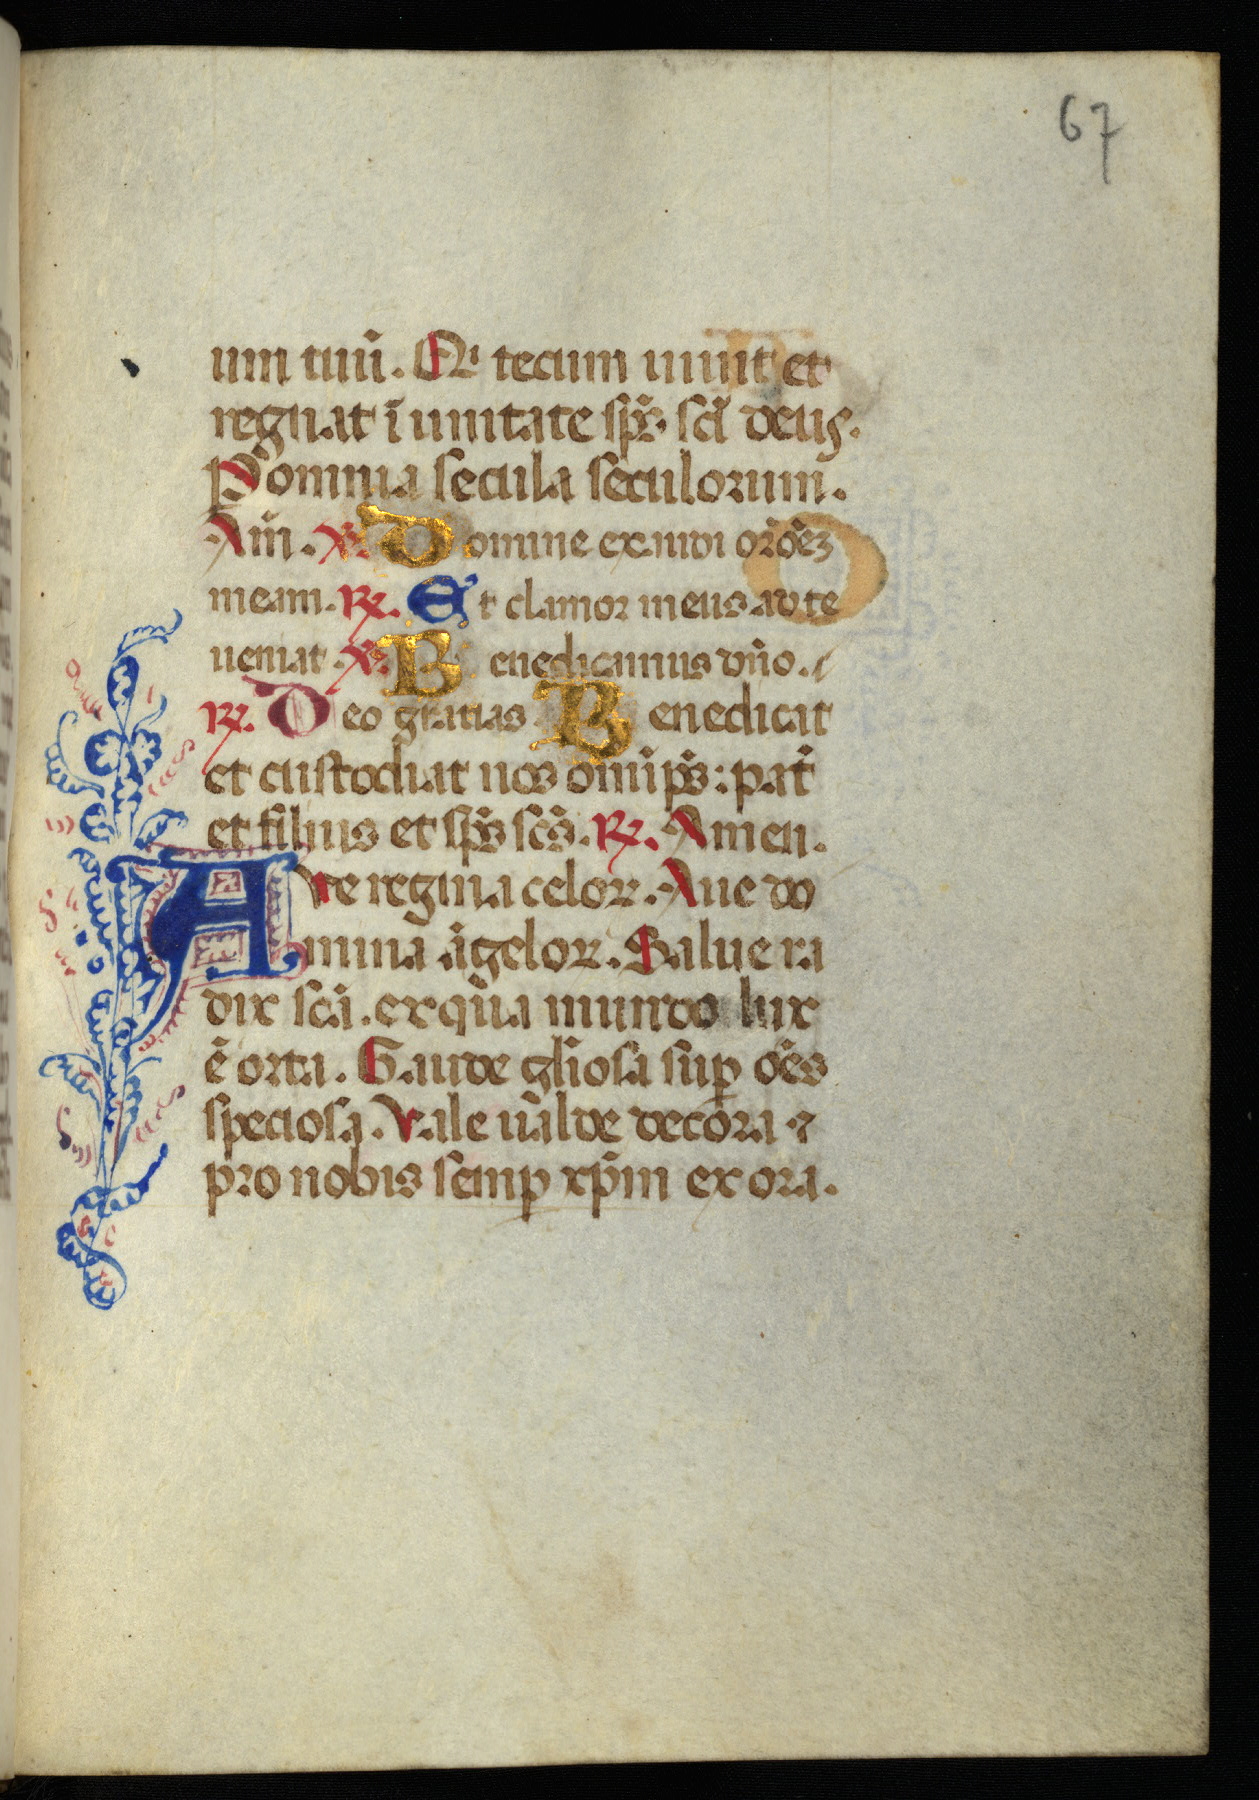 67
um tuū. Qi tecum uiuit et
regnat ī unitate sp̄s sc̄i deus.
P omnia secula seculorum.
Am̄. ℣. Domine exaudi orōēz
meam. ℟. Et clamor meus ad te
ueniat ℣. Benedicamus dn̄o.
℟. Deo gratias. Benedicat
et custodiat nos om̄ip̄s: pat̄
et filius et sp̄s sc̄s. ℟. Amen.
Ave regina celoꝝ. Aue do
mina āgeloꝝ. Salue ra
dix sc̄a. ex qūa mundo lux
ē orta. Gaude gl̄iosa sup̄ oēs
speciosa. Vale ūalde decora ⁊
pro nobis semp xp̄m exora.